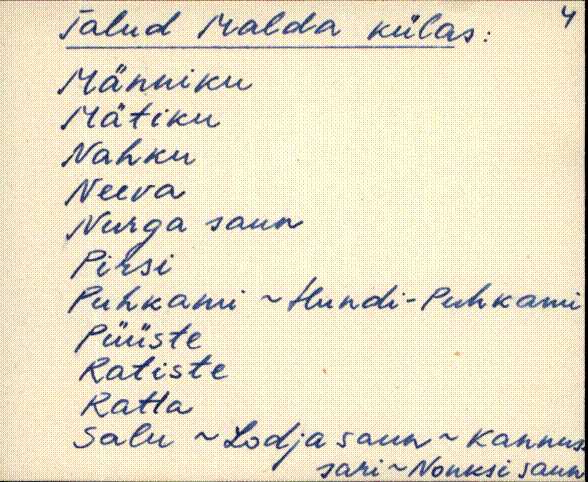 4
Talud Malda külas:
Männiku
Mätiku
Nahku
Neeva
Nurga saun
Pirsi
Puhkami ~ Hundi-Puhkami
Püüste
Ratiste
Ratta
Salu ~ Lodja saun ~ Kannus
sari ~ Nonksi saun